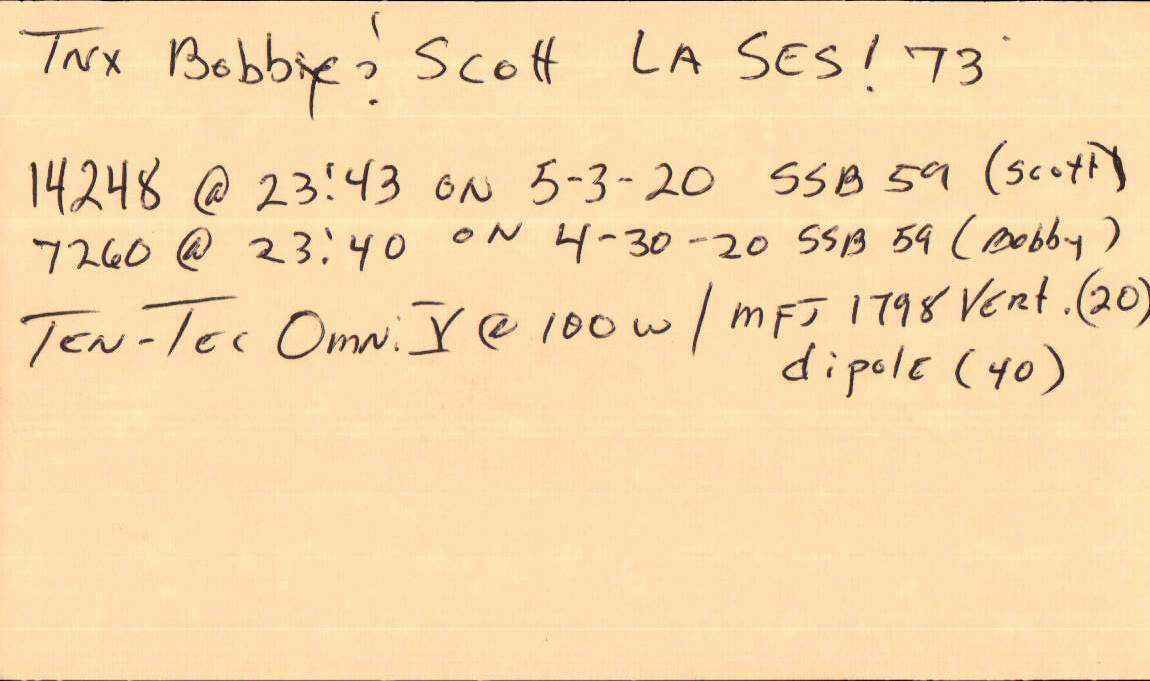 TNX Bobby & Scott LA SES! 73
14248 @ 23:43 ON 5-3-20 SSB 59 (Scott)
7260 @ 23:40 ON 4-30-20 SSB 59 (Bobby)
TEN-TEC OMNI V @ 100w / MFJ 1798 Vert. (20)
dipole (40)